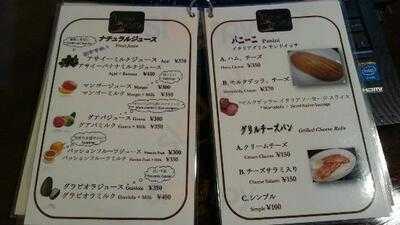 ナチュラルジュース
Fruit Juice
アサイーミルクジュース Açaí ¥370
アサイーバナナミルクジュース
Açaí + Banana ¥400
マンゴージュース Mango ¥300
マンゴーミルク Mango + Milk ¥350
グァバジュース Guava ¥300
グァバミルク Guava + Milk ¥350
パッションフルーツジュース ¥300
パッションフルーツミルク ¥350
グラビオラジュース Graviola ¥350
グラビオラミルク Graviola + Milk ¥400
パニーニ Panini
イタリアグリルサンドイッチ
A. ハム、チーズ
¥350
B. モルタデッラ、チーズ
¥370
グリルチーズパン Grilled Cheese Rolls
A. クリームチーズ
Cream Cheese ¥150
B. チーズサラミ入り
Cheese Salami ¥150
C. シンプル
Simple ¥100
intel
HDMI